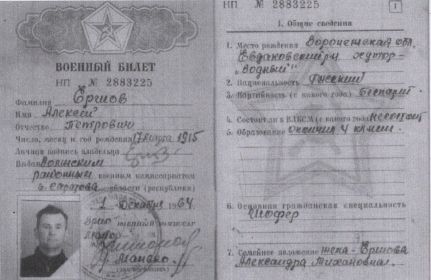 ВОЕННЫЙ БИЛЕТ
НП № 2883225
Фамилия Ершов
Имя Алексей
Отчество Петрович
Число, месяц и год рождения 1915
Личная подпись владельца
Выдан
районным военным комиссариатом
г. Саратова области (республики)
1 Декабря 64
военный комиссар
НП № 2883225
1
I. Общие сведения
1. Место рождения Воронежская обл.
Евдаковский р-н хутор-
„Водный"
2. Национальность Русский
3. Партийность (с какого года) беспарт.
4. Состоит ли в ВЛКСМ (с какого года) не состоит
5. Образование окончил 4 класс.
6. Основная гражданская специальность
Шофер
7. Семейное положение жена - Ершова
Александра Тихоновна.